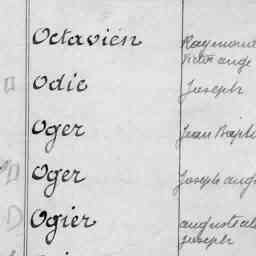 Octavien Raymond
Victor ange
Odic Joseph
Oger Jean Bapti
Oger Joseph aug
Ogier auguste al
Joseph